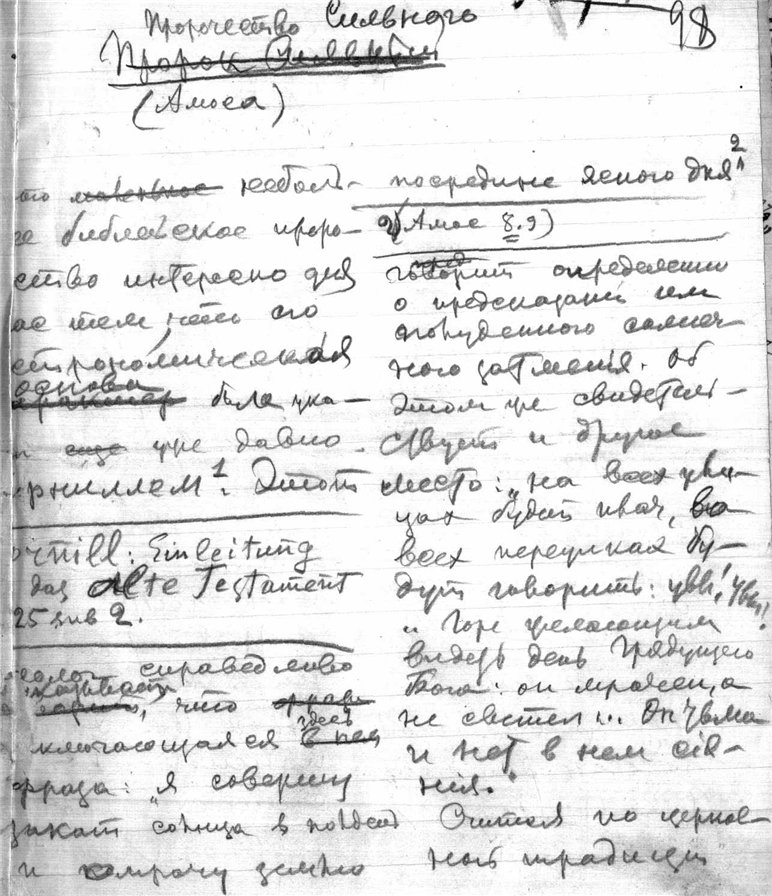 Пророчество Сильного
Пророк Сильный
(Амоса)
98
это маленькое неболь-
ое библейское проро-
чество интересно для
нас тем, что его
астрономическая
основа
характер была ука-
на еще уже давно
Корниллем¹. Этот
Cornill: Einleitung
das Alte Testament
25 изв 2.
справедливо
что
здесь
заключающаяся в ней
фраза: "я совершу
закат солнца в полдень
и омрачу землю
посредине ясного дня"²
2) Амос 8.9)
говорит определенно
о предсказании им
солнеч-
ного затмения. Об
этом же свидетель-
ствует и другое
место: "на всех ули-
цах будет плач, во
всех переулках бу-
дут говорить: увы! увы!
"Горе желающим
видеть день Грядущего
Бога: он мрачен, а
не светел... Он тьма
и нет в нем сия-
ния."
Считая по церков-
ной традиции